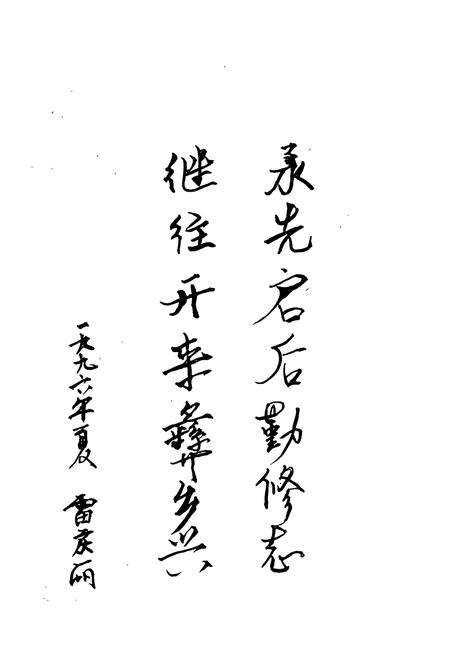 承先启后勤修志
继往开来彝乡兴
一九九六年夏 雷庆丽